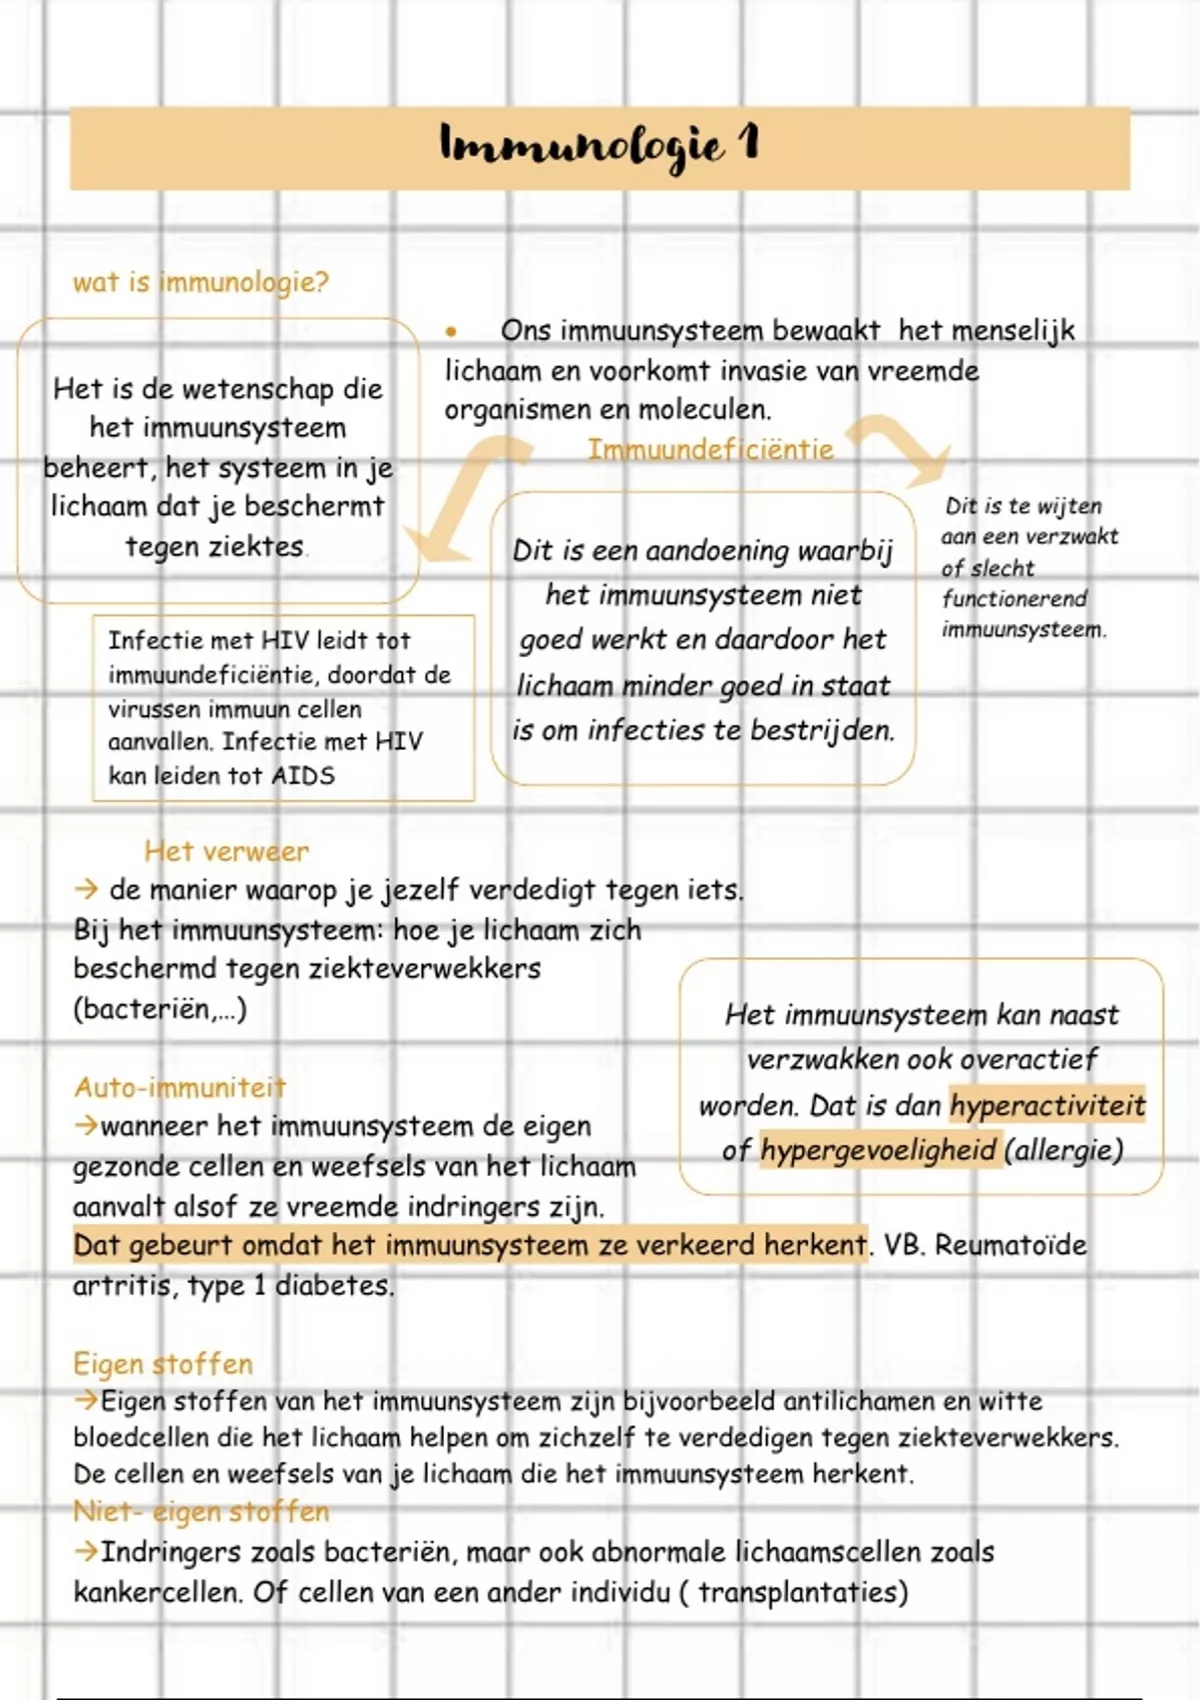 Immunologie 1
wat is immunologie?
Het is de wetenschap die
het immuunsysteem
beheert, het systeem in je
lichaam dat je beschermt
tegen ziektes.
• Ons immuunsysteem bewaakt het menselijk
lichaam en voorkomt invasie van vreemde
organismen en moleculen.
Immuundeficiëntie
Dit is een aandoening waarbij
het immuunsysteem niet
goed werkt en daardoor het
lichaam minder goed in staat
is om infecties te bestrijden.
Dit is te wijten
aan een verzwakt
of slecht
functionerend
immuunsysteem.
Infectie met HIV leidt tot
immuundeficiëntie, doordat de
virussen immuun cellen
aanvallen. Infectie met HIV
kan leiden tot AIDS
Het verweer
→ de manier waarop je jezelf verdedigt tegen iets.
Bij het immuunsysteem: hoe je lichaam zich
beschermd tegen ziekteverwekkers
(bacteriën,...)
Het immuunsysteem kan naast
verzwakken ook overactief
worden. Dat is dan hyperactiviteit
of hypergevoeligheid (allergie)
Auto-immuniteit
→wanneer het immuunsysteem de eigen
gezonde cellen en weefsels van het lichaam
aanvalt alsof ze vreemde indringers zijn.
Dat gebeurt omdat het immuunsysteem ze verkeerd herkent. VB. Reumatoïde
artritis, type 1 diabetes.
Eigen stoffen
→Eigen stoffen van het immuunsysteem zijn bijvoorbeeld antilichamen en witte
bloedcellen die het lichaam helpen om zichzelf te verdedigen tegen ziekteverwekkers.
De cellen en weefsels van je lichaam die het immuunsysteem herkent.
Niet- eigen stoffen
→Indringers zoals bacteriën, maar ook abnormale lichaamscellen zoals
kankercellen. Of cellen van een ander individu ( transplantaties)